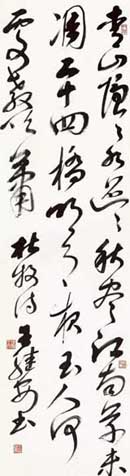 青山隱〻水迢〻秋尽江南草未
凋二十四橋明月夜玉人何
處教吹簫 杜牧诗 王继安书